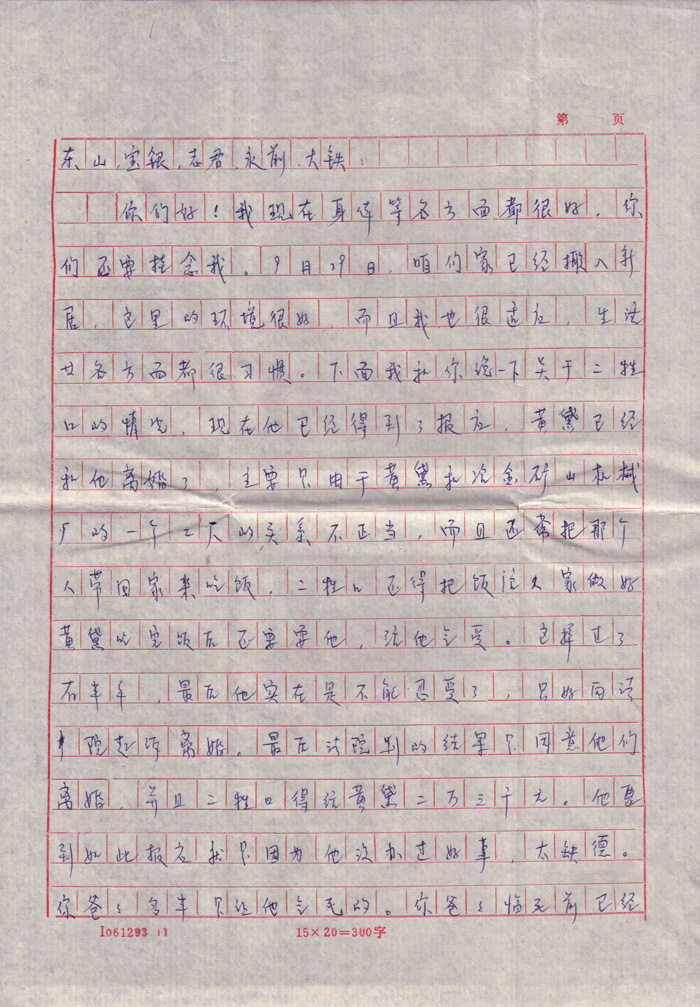 第 页
东山、宝银、志君、永前、大铁：
你们好！我现在身体等各方面都很好，你
们不要挂念我。9月29日，咱们家已经搬入新
居，这里的环境很好，而且我也很适应，生活
廿各方面都很习惯。下面我和你说一下关于二牲
口的情况，现在他已经得到了报应，黄黛已经
和他离婚了，主要只由于黄黛和冶金矿山机械
厂的一个工人的关系不正当，而且还常把那个
人带回家来吃饭，二牲口还得把饭给人家做好
黄黛吃完饭后还要耍他，让他受。这样过了
右半年，最后他实在是不能忍受了，只好向法
院起诉离婚。最后法院判的结果只同意他们
离婚，并且二牲口得给黄黛二万三千元。他遭
到如此报应我只因为他没办过好事，太缺德。
你爸爸多半只让他气死的。你爸爸临死前已经
I061293 11 15×20=300字